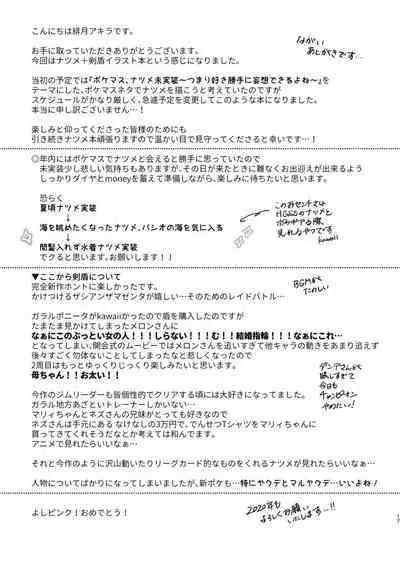 こんにちは緋月アキラです。
ながい
あとがきです。
お手に取っていただきありがとうございます。
今回はナツメ＋剣盾イラスト本という感じになりました。
当初の予定では『ポケマス、ナツメ未実装～つまり好き勝手に妄想できるよね～』を
テーマにした、ポケマスネタでナツメを描こうと考えていたのですが
スケジュールがかなり厳しく、急遽予定を変更してこのような本になりました。
本当に申し訳ございません…！
楽しみと仰ってくださった皆様のためにも
引き続きナツメ本頑張りますので温かい目で見守ってくださると幸いです…！
◎年内にはポケマスでナツメと会えると勝手に思っていたので
未実装少し悲しい気持ちもありますが、その日が来たときに難なくお出迎えが出来るよう
しっかりダイヤとmoneyを蓄えて準備しながら、楽しみに待ちたいと思います。
恐らく
夏頃ナツメ実装
↓
海を眺めたくなったナツメ、パシオの海を気に入る
↓
間髪入れず水着ナツメ実装
でくると思います。お願いします！！
HGSSのナツメと
kawaii
▼ここから剣盾について
完全新作ホントに楽しかったです。
かけつけるザシアンザマゼンタが嬉しい…そのためのレイドバトル…
BGMが
たのしい
ガラルポニータがkawaiiかったので盾を購入したのですが
たまたま見かけてしまったメロンさんに
なぁにこのぶっとい女の人！！！しらない！！！む！！結婚指輪！！！なぁにこれ…
となってしまい、開会式のムービーではメロンさんを追いすぎて他キャラの動きをあまり追えず
後々すごく勿体ないことしてしまったなと悲しくなったので
2周目はもっとゆっくりじっくり楽しみたいと思います。
母ちゃん！！お太い！！
今作のジムリーダーも皆個性的でクリアする頃には大好きになってました。
ガラル地方あざといトレーナーしかいない…
マリィちゃんとネズさんの兄妹がとっても好きなので
ネズさんは手元にある なけなしの3万円で、でんせつTシャツをマリィちゃんに
買ってきてくれそうだなとか考えては和んでます。
アニメで見れたらいいなぁ…
ダンデさんから
今日も
チャンピオン
やめたい！
それと今作のように沢山動いたりリーグカード的なものをくれるナツメが見れたらいいなぁ…
人物についてばかりになってしまいましたが、新ポケも…特にヤクデとマルヤクデ…いいよね！
よしピンク！おめでとう！
2020年も
よろしくお願い
いたします…!!